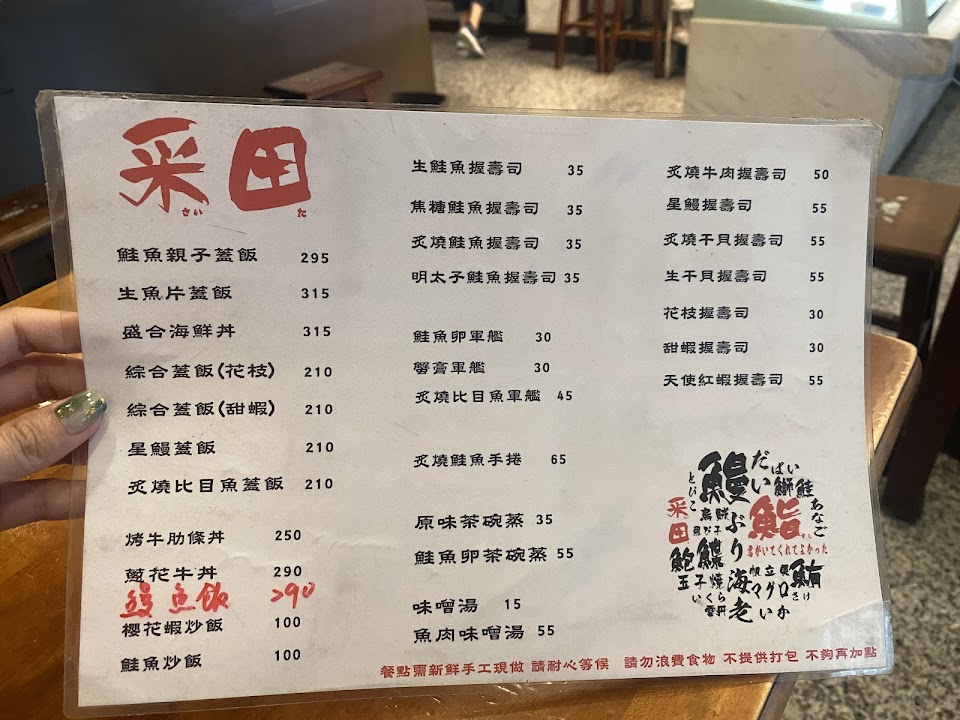 采田
さい た
鮭魚親子蓋飯 295
生魚片蓋飯 315
盛合海鮮丼 315
綜合蓋飯(花枝) 210
綜合蓋飯(甜蝦) 210
星鰻蓋飯 210
炙燒比目魚蓋飯 210
烤牛肋條丼 250
蔥花牛丼 290
鰻魚飯 290
櫻花蝦炒飯 100
鮭魚炒飯 100
生鮭魚握壽司 35
焦糖鮭魚握壽司 35
炙燒鮭魚握壽司 35
明太子鮭魚握壽司 35
鮭魚卵軍艦 30
蟹膏軍艦 30
炙燒比目魚軍艦 45
炙燒鮭魚手捲 65
原味茶碗蒸 35
鮭魚卵茶碗蒸 55
味噌湯 15
魚肉味噌湯 55
炙燒牛肉握壽司 50
星鰻握壽司 55
炙燒干貝握壽司 55
生干貝握壽司 55
花枝握壽司 30
甜蝦握壽司 30
天使紅蝦握壽司 55
とびこ
采田
鰻
だい
ぱい
鰤鮭
あなご
烏賊
飛び子
ぶり
鮨
すし
君がいてくれてよかった
鮑
玉子焼
いくら
雲丹
海老
帆立貝
マグロ
いか
鮪
さけ
餐點需新鮮手工現做 請耐心等候 請勿浪費食物 不提供打包 不夠再加點